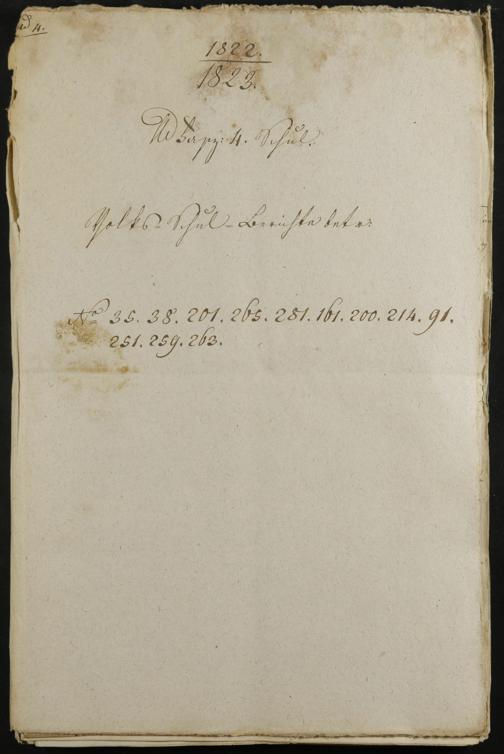 ad 4.
1822.
1823.
Ad Caps: 4. Schul.
Volks-Schul-Berichte betr:
No 35. 38. 201. 265. 281. 161. 200. 214. 91.
251. 259. 263.